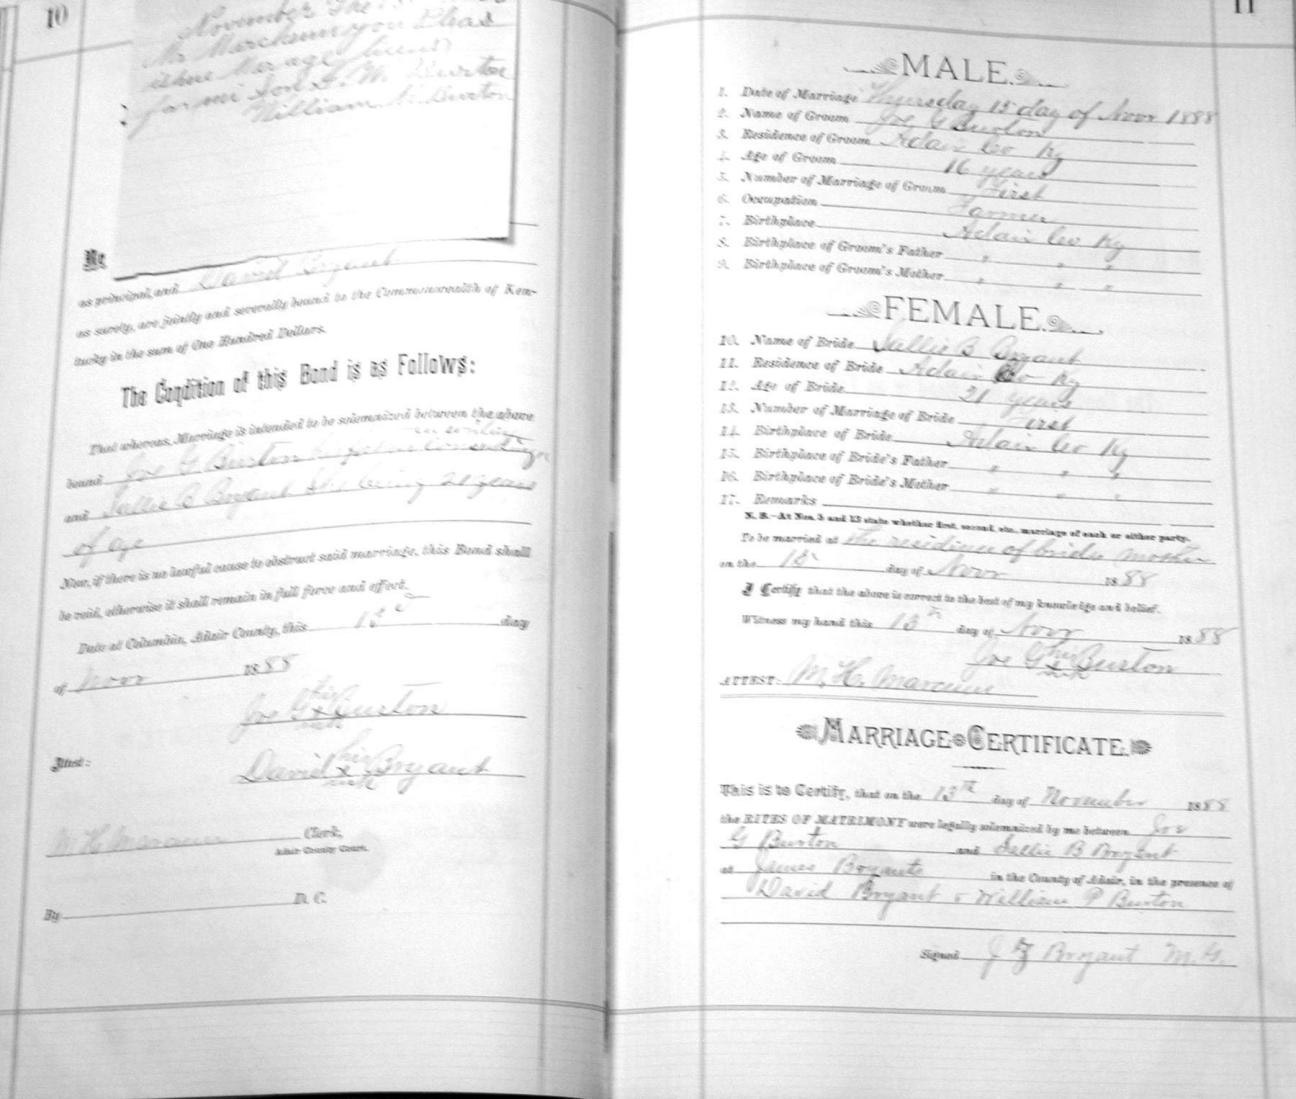 10
November the
Mr Marcheum you Pleas
ishue Marage licens
for mi Son G. W. Burton
William A. Burton
We
as principal, and David Bryant
as surety, are jointly and severally bound to the Commonwealth of Ken-
tucky in the sum of One Hundred Dollars.
The Condition of this Bond is as Follows:
That whereas, Marriage is intended to be solemnized between the above
in writing
bound Joe G Burton his father consenting
and Sallie B Bryant She being 21 years
of age
Now, if there is no lawful cause to obstruct said marriage, this Bond shall
be void, otherwise it shall remain in full force and effect.
Date at Columbia, Adair County, this 13 day
of Novr 1888
Joe G his x mark Burton
Attest:
David his x mark Bryant
M H Marcum Clerk,
Adair County Court.
By D. C.
11
MALE.
1. Date of Marriage Thursday 15 day of Novr 1888
2. Name of Groom Joe G Burton
3. Residence of Groom Adair Co Ky
4. Age of Groom 16 years
5. Number of Marriage of Groom First
6. Occupation Farmer
7. Birthplace Adair Co Ky
8. Birthplace of Groom's Father " " "
9. Birthplace of Groom's Mother " " "
FEMALE.
10. Name of Bride Sallie B Bryant
11. Residence of Bride Adair Co Ky
12. Age of Bride 21 years
13. Number of Marriage of Bride First
14. Birthplace of Bride Adair Co Ky
15. Birthplace of Bride's Father " " "
16. Birthplace of Bride's Mother " " "
17. Remarks
N. B.—At Nos. 5 and 13 state whether first, second, etc., marriage of each or either party.
To be married at the residence of brides mother
on the 15 day of Novr 1888
I Certify that the above is correct to the best of my knowledge and belief.
Witness my hand this 13th day of Novr 1888
Joe G his x mark Burton
ATTEST: M. H. Marcum
MARRIAGE CERTIFICATE.
This is to Certify, that on the 15th day of November 1888
the RITES OF MATRIMONY were legally solemnized by me between Joe
G Burton and Sallie B Bryant
at James Bryants in the County of Adair, in the presence of
David Bryant & William P Burton
Signed J Z Bryant M. G.